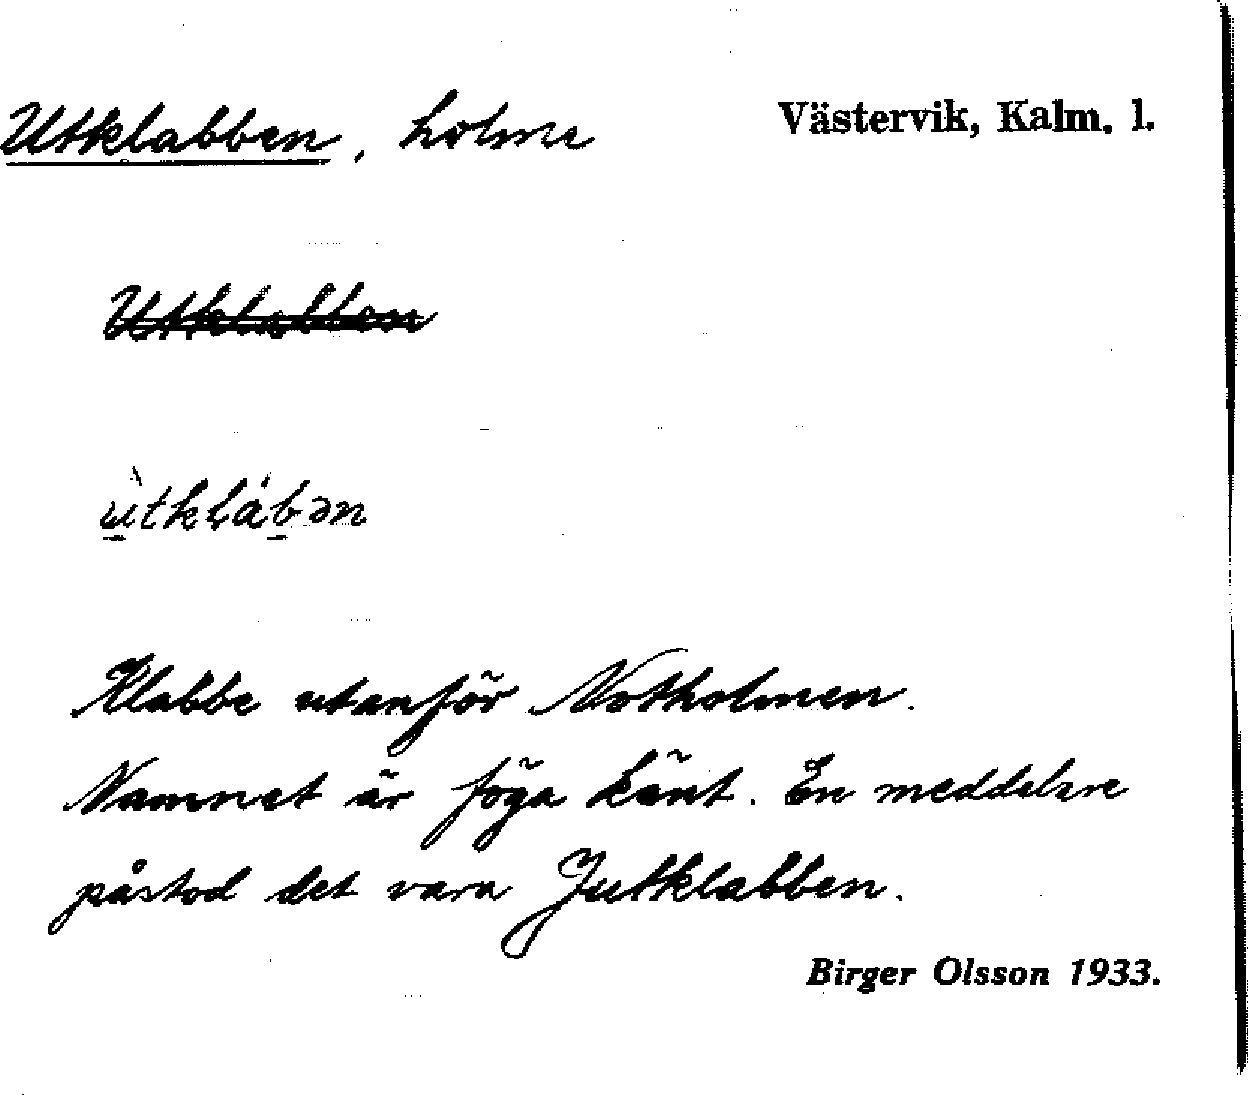 Utklabben, holme
Västervik, Kalm. l.
Utklabben
ùtkláben
Klabbe utanför Notholmen.
Namnet är föga känt. En meddelare
påstod det vara Jutklabben.
Birger Olsson 1933.